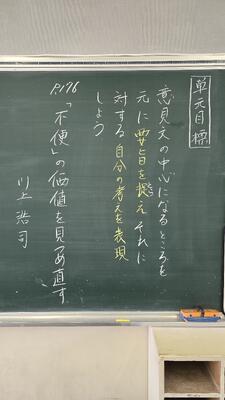 単元目標
意見文の中心になるところを
元に要旨を捉え それに
対する 自分の考えを表現
しよう
P.176
「不便」の価値を見つめ直す
川上 浩司